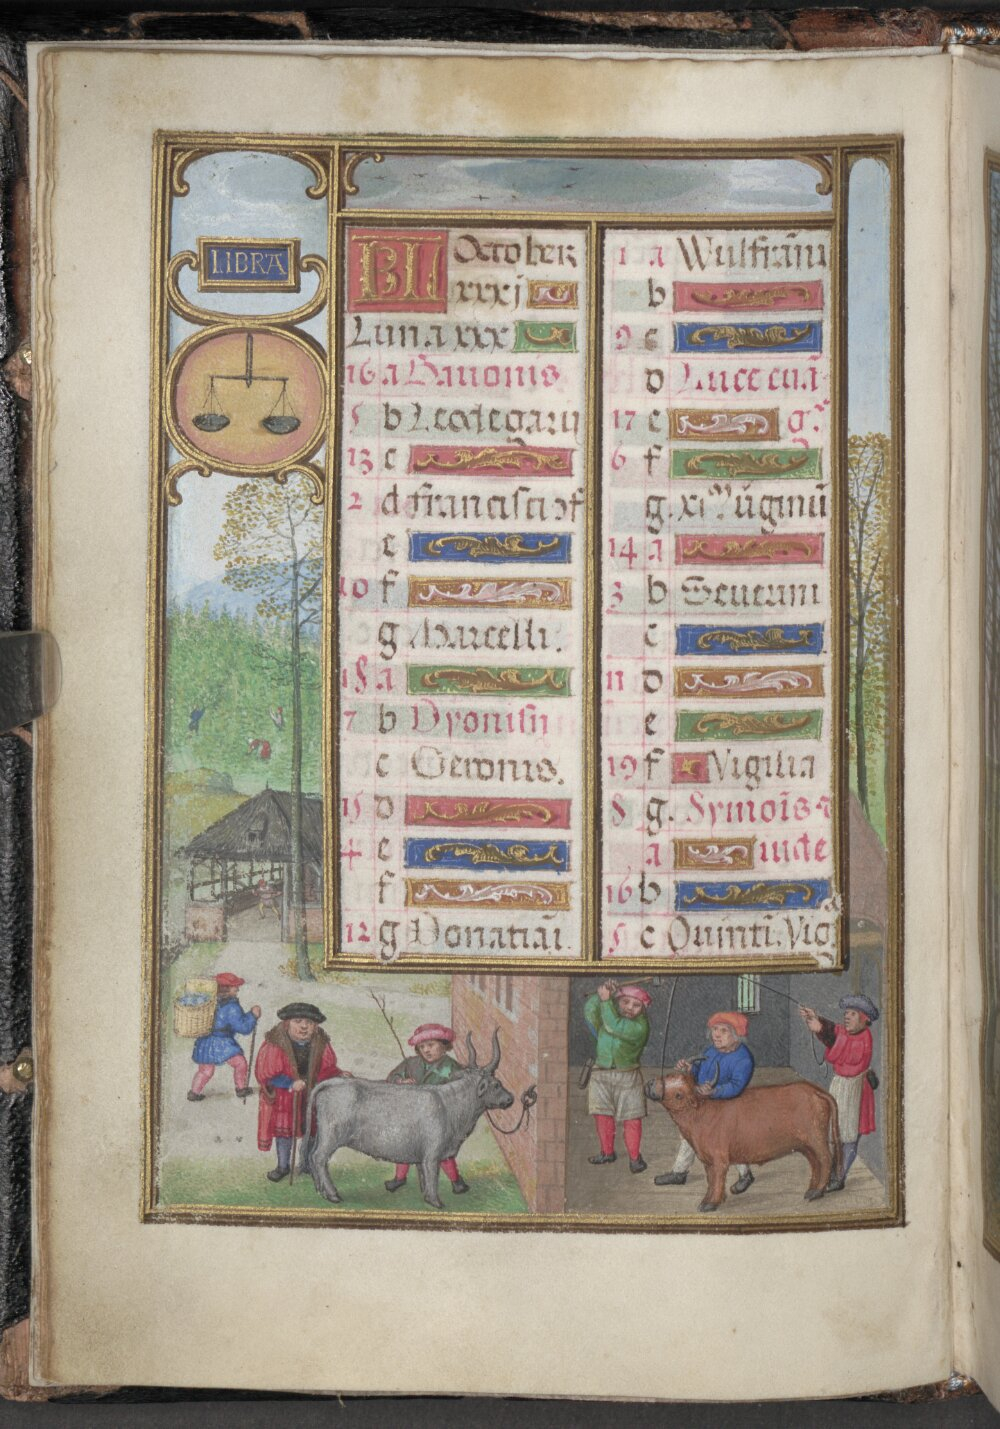 LIBRA
KL October
xxxj
Luna xxx
16 a Bauonis
5 b Leodegarii
13 c
2 d francisci ɔf
e
10 f
g Marcelli.
18 a
7 b Dyonisij
c Gereonis.
15 d
4 e
f
12 g Donatiãi.
1 a Wulfrãni
b
9 c
d Luce euã
17 e g.
6 f
g xi m̃ uĩginũ
14 a
3 b Seuerini
c
11 d
e
19 f Vigilia
8 g Symoĩs ⁊
a iude
16 b
5 c Quinti. Vig